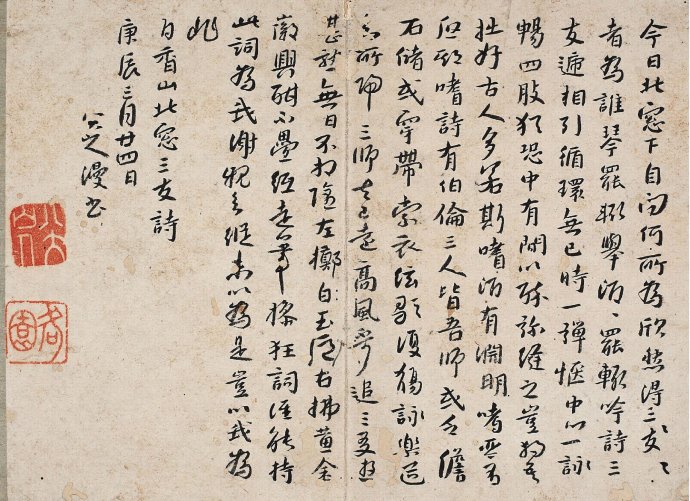 今日北窓下自问何所為欣然得三友〻
者為誰琴罷輒舉酒〻罷輒吟詩三
友遞相引循環無已時一彈愜中心一詠
暢四肢猶恐中有間以酔弥縫之豈独吾
拙好古人多若斯嗜酒有淵明嗜琴有
啟期嗜詩有伯倫三人皆吾師或乏儋
石儲或穿帶索衣弦歌復觴詠樂道
知所歸三師去已遠高風不可追三友游
甚熟無日不相隨左擲白玉卮右拂黃金
徽興酣不疊紙走筆操狂詞誰能持
此詞為我謝親知縱未以為是豈以我為
非
白香山北窓三友詩
庚辰三月廿四日
漫書
何園